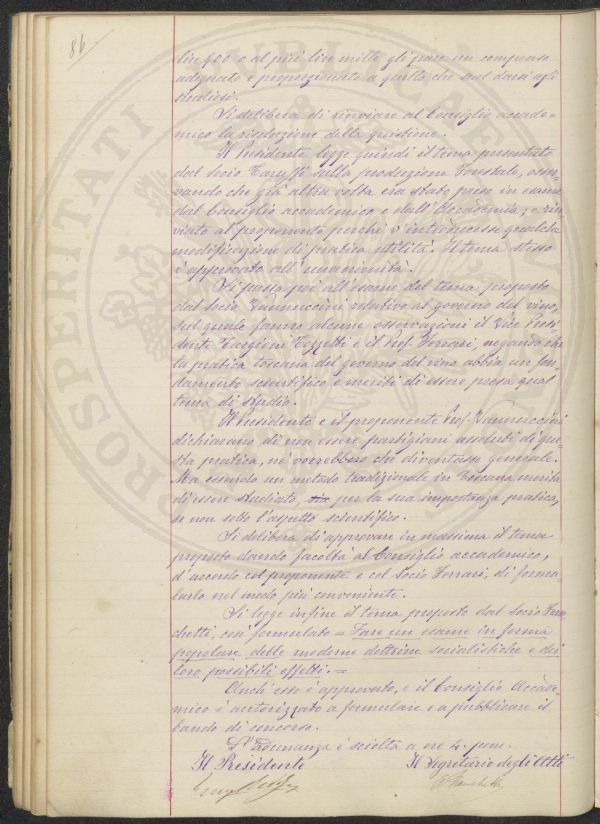 86
lire 900 e al più lire mille gli pare un compenso
adeguato e proporzionato a quello che suol darsi agli
studiosi.
Si delibera di rinviare al Consiglio accade=
mico la risoluzione della questione.
Il Presidente legge quindi il tema presentato
dal Socio Caruffi sulla produzione forestale, osser=
vando che già altra volta era stato preso in esame
dal Consiglio accademico e dall'Accademia, e rin=
viato al proponente perché v'introducesse qualche
modificazione di pratica utilità. Il tema stesso
è approvato all'unanimità.
Si passa poi all'esame del tema proposto
dal Socio Vannuccini relativo al governo del vino,
sul quale fanno alcune osservazioni il Vice Presi=
dente Targioni Tozzetti e il Prof. Ferrari, negando che
la pratica toscana del governo del vino abbia un fon=
damento scientifico e meriti di essere presa qual
tema di studio.
Il Presidente e il proponente Prof. Vannuccini
dichiarano di non essere partigiani assoluti di que=
sta pratica, né vorrebbero che diventasse generale.
Ma essendo un metodo tradizionale in Toscana merita
di essere studiato, per la sua importanza pratica,
se non sotto l'aspetto scientifico.
Si delibera di approvare in massima il tema
proposto dando facoltà al Consiglio accademico,
d'accordo col proponente e col Socio Ferrari, di formu=
larlo nel modo più conveniente.
Si legge infine il tema proposto dal Socio Fran=
chetti, così formulato = Fare un esame in forma
popolare delle moderne dottrine socialistiche e dei
loro possibili effetti. =
Anch'esso è approvato, e il Consiglio Accade=
mico è autorizzato a formulare e a pubblicare il
bando di concorso.
L'adunanza è sciolta a ore 4. pom.
Il Presidente Il Segretario degli Atti
A Franchetti
PROSPERITATI PUBLICAE